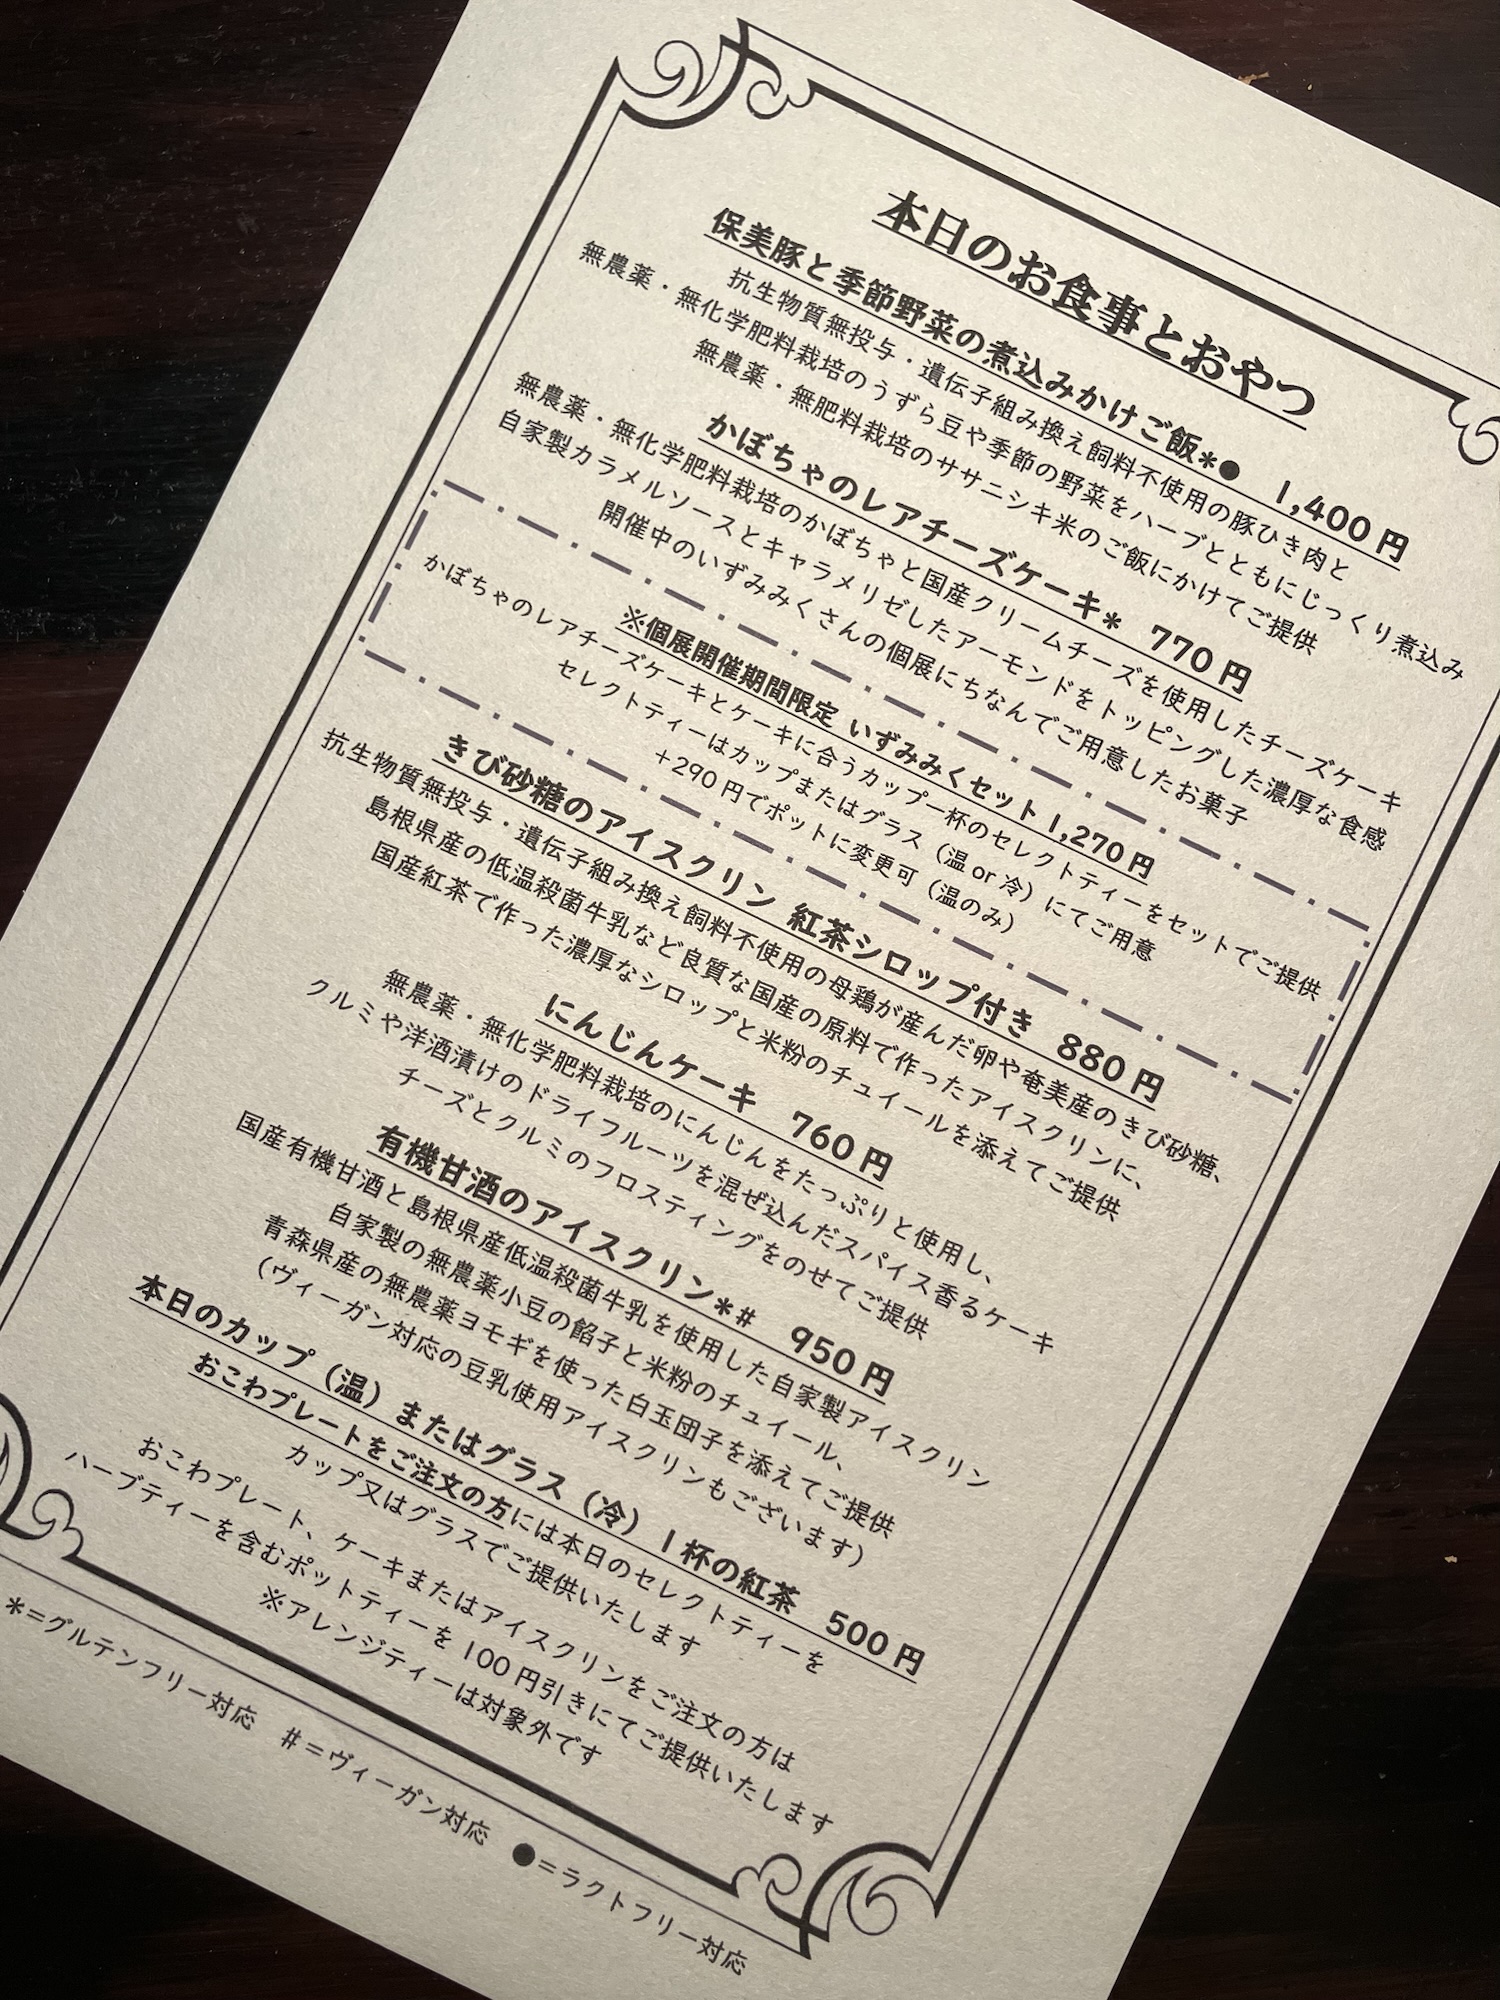 本日のお食事とおやつ
保美豚と季節野菜の煮込みかけご飯*● 1,400円
抗生物質無投与・遺伝子組み換え飼料不使用の豚ひき肉と
無農薬・無化学肥料栽培のうずら豆や季節の野菜をハーブとともにじっくり煮込み
無農薬・無肥料栽培のササニシキ米のご飯にかけてご提供
かぼちゃのレアチーズケーキ* 770円
無農薬・無化学肥料栽培のかぼちゃと国産クリームチーズを使用したチーズケーキ
自家製カラメルソースとキャラメリゼしたアーモンドをトッピングした濃厚な食感
開催中のいずみみくさんの個展にちなんでご用意したお菓子
※個展開催期間限定 いずみみくセット 1,270円
かぼちゃのレアチーズケーキとケーキに合うカップ一杯のセレクトティーをセットでご提供
セレクトティーはカップまたはグラス（温or冷）にてご用意
+290円でポットに変更可（温のみ）
きび砂糖のアイスクリン 紅茶シロップ付き 880円
抗生物質無投与・遺伝子組み換え飼料不使用の母鶏が産んだ卵や奄美産のきび砂糖、
島根県産の低温殺菌牛乳など良質な国産の原料で作ったアイスクリンに、
国産紅茶で作った濃厚なシロップと米粉のチュイールを添えてご提供
にんじんケーキ 760円
無農薬・無化学肥料栽培のにんじんをたっぷりと使用し、
クルミや洋酒漬けのドライフルーツを混ぜ込んだスパイス香るケーキ
チーズとクルミのフロスティングをのせてご提供
有機甘酒のアイスクリン*# 950円
国産有機甘酒と島根県産低温殺菌牛乳を使用した自家製アイスクリン
自家製の無農薬小豆の餡子と米粉のチュイール、
青森県産の無農薬ヨモギを使った白玉団子を添えてご提供
（ヴィーガン対応の豆乳使用アイスクリンもございます）
本日のカップ（温）またはグラス（冷）1杯の紅茶 500円
おこわプレートをご注文の方には本日のセレクトティーを
カップ又はグラスでご提供いたします
おこわプレート、ケーキまたはアイスクリンをご注文の方は
ハーブティーを含むポットティーを100円引きにてご提供いたします
※アレンジティーは対象外です
*=グルテンフリー対応 #=ヴィーガン対応 ●=ラクトフリー対応